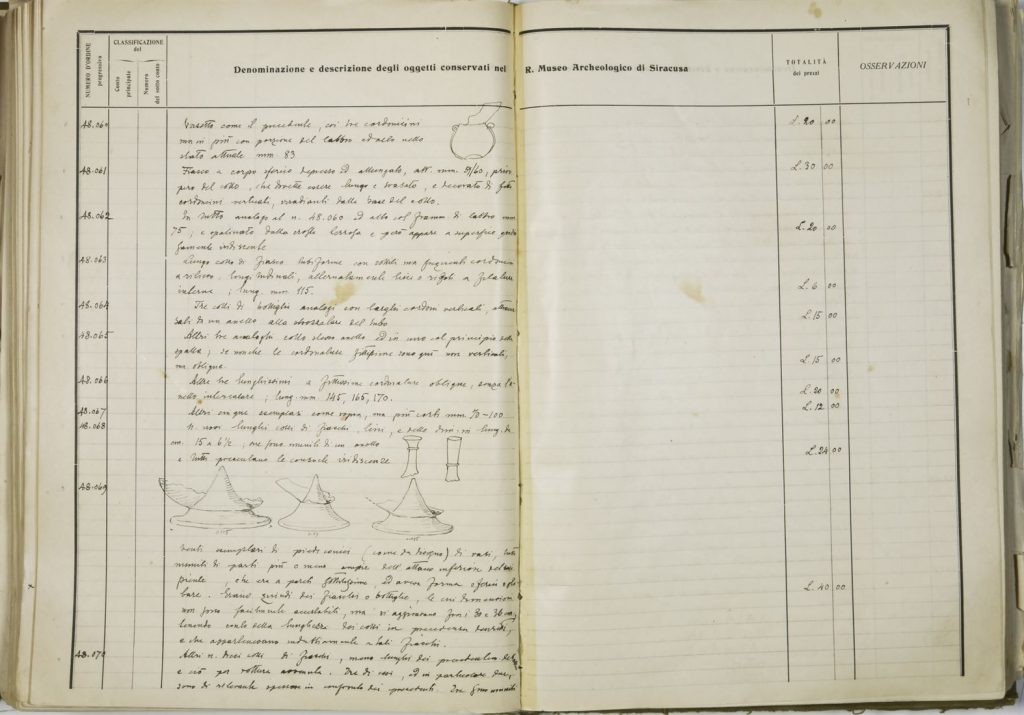 NUMERO D'ORDINE progressivo
CLASSIFICAZIONE del
Conto principale
Numero del sotto conto
Denominazione e descrizione degli oggetti conservati nel R. Museo Archeologico di Siracusa
TOTALITÀ dei prezzi
OSSERVAZIONI
48.060 Vasetto come il precedente, coi tre cordoncini L. 20 00
ma in più con porzione del labbro ed alto nello
stato attuale mm 83
48.061 Fiasco a corpo sferico depresso ed allungato, att. mm. 59/60, privo L. 30 00
del collo, che dovette essere lungo e svasato, e decorato di fitti
cordoncini verticali, irradianti dalla base del collo.
48.062 In tutto analogo al n. 48.060 ed alto col framm. di labbro mm.
75; è opalinato dalla crosta terrosa e però appare a superficie L. 20 00
iridiscente
48.063 Lungo collo di fiasco tubiforme con sottili ma frequenti cordoncini
a rilievo, longitudinali, alternatamente lisci o
interne; lung. mm. 115. L. 6 00
48.064 Tre colli di bottiglie analoghi con larghi cordoni verticali,
di un anello alla strozzatura del tubo L. 15 00
48.065 Altri tre analoghi collo stesso anello ed in uno col principio della
spalla; se nonchè le cordonature fittissime sono qui non verticali,
ma oblique. L. 15 00
48.066 Altre tre lunghissimi a fittissime cordonature oblique, senza
anello; lung. mm. 145, 165, 170. L. 20 00
48.067 Altri cinque esemplari come sopra, ma più corti mm. 70-100 L. 12 00
48.068 N. nove lunghi colli di fiaschi, lisci, e della dimens. lung. da
cm. 15 a 6½; tre sono muniti di un anello
e tutti presentano le consuete iridiscenze L. 24 00
48.069
Venti esemplari di piedi conici (come da disegno) di vasi, tutti
muniti di parti più o meno ampie dell'attacco inferiore del
recipiente, che era a pareti sottilissime, ed aveva forma sferica o
globare. Erano quindi dei fiaschi o bottiglie, le cui dimensioni L. 40 00
non sono facilmente accertabili, ma si aggiravano fra i 30 e 36 cm,
tenendo conto della lunghezza dei colli in precedenza descritti,
e che appartenevano indubbiamente a tali fiaschi.
48.070 Altri n. dieci colli di fiaschi, meno lunghi dei precedenti
e ciò per rottura avvenuta. Tre di essi, ed in particolare due,
sono di rilevante spessore in confronto dei precedenti. Tre sono